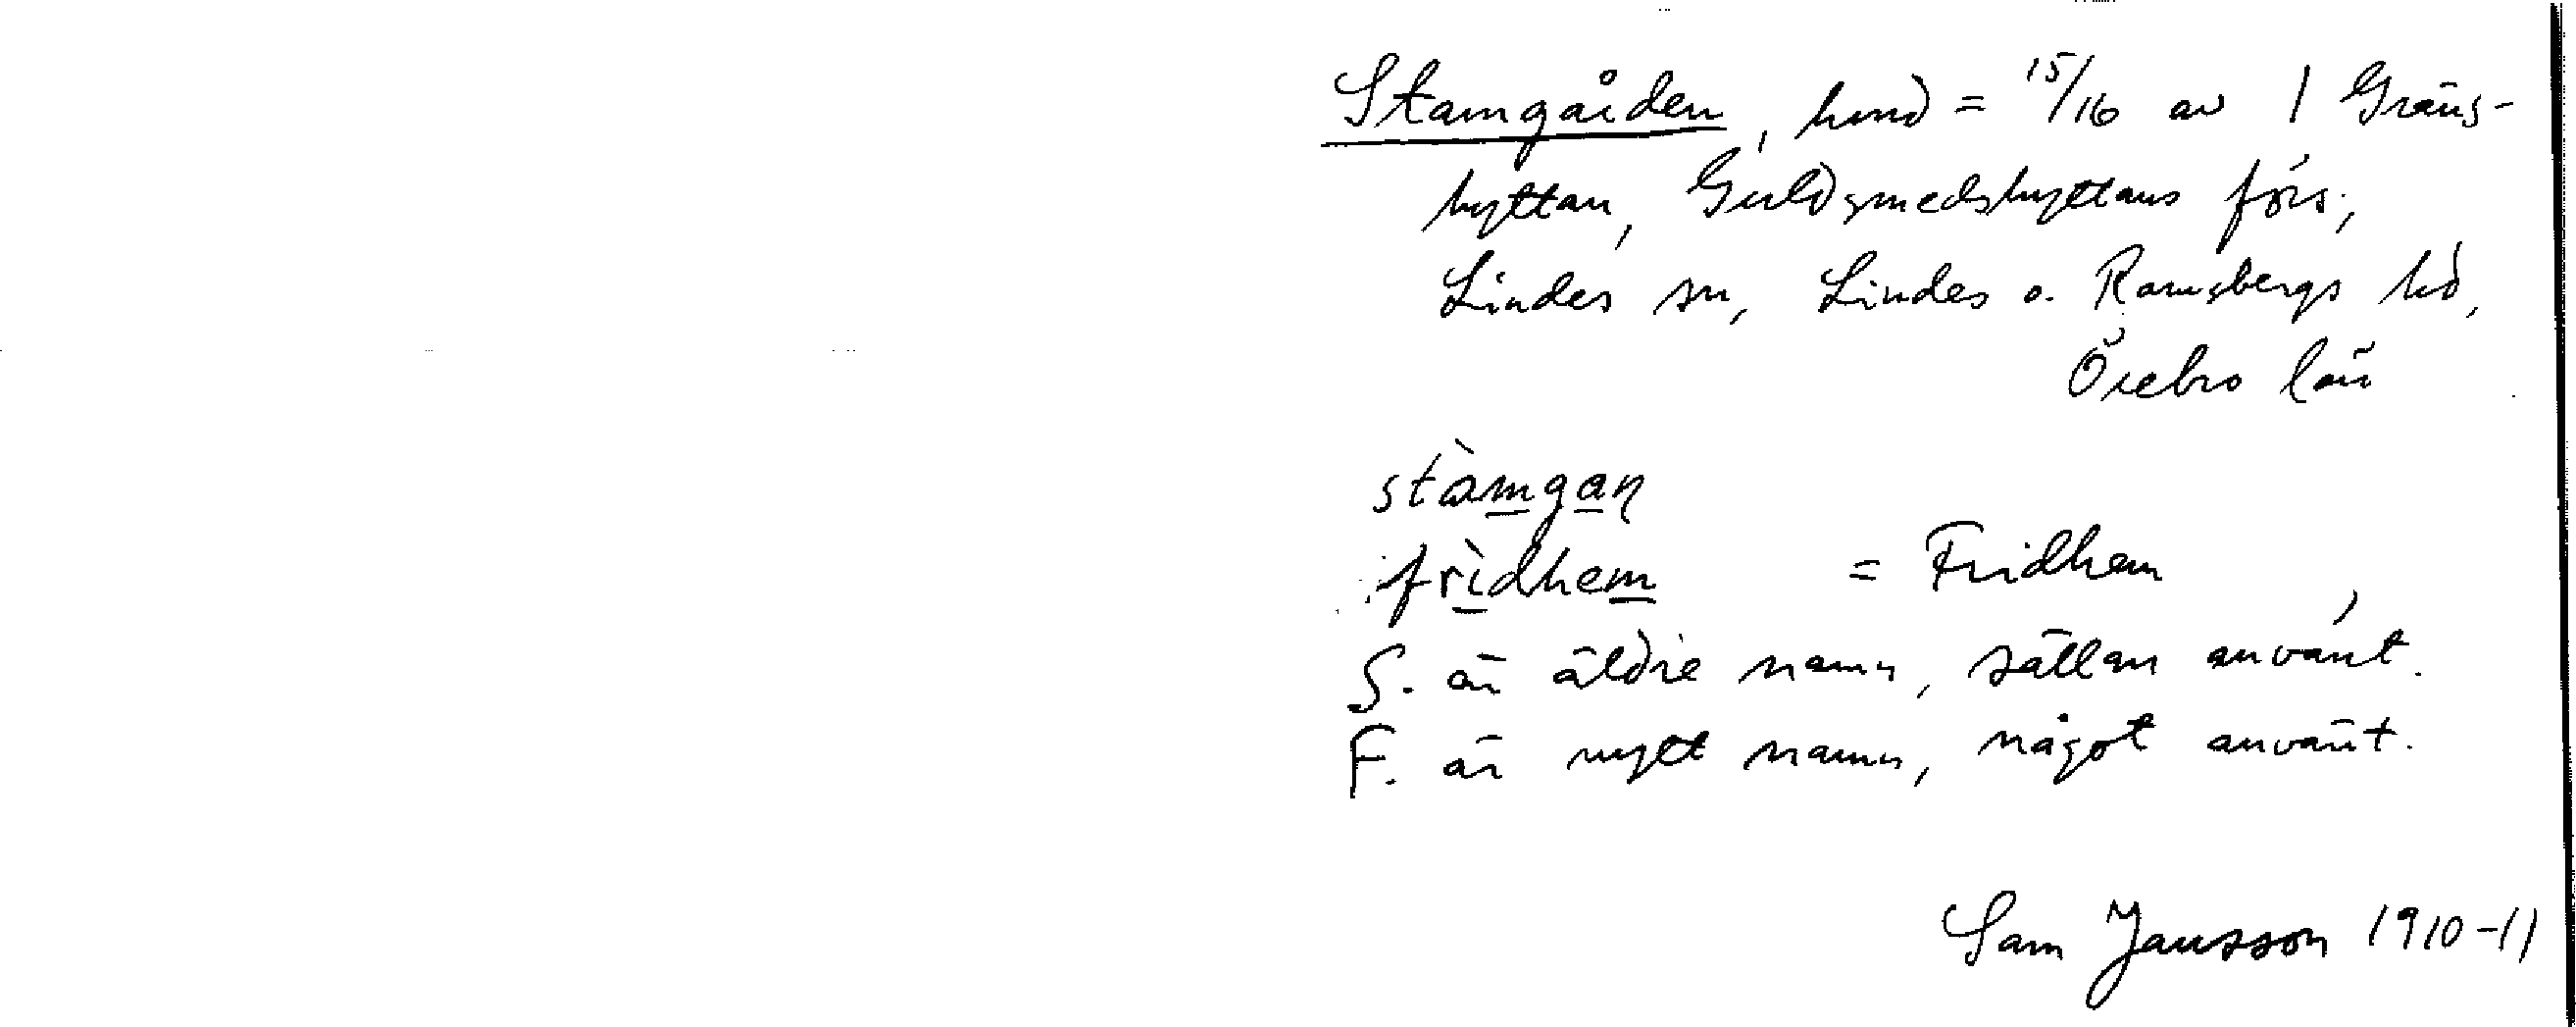 Stamgården, hmd = 15/16 av 1 Gräns-
hyttan, Guldsmedshyttans förs.,
Lindes sn, Lindes o. Ramsbergs hd,
Örebro län
stàmgaṇ
frìdhem = Fridhem
S. är äldre namn, sällan använt.
F. är nytt namn, något använt.
Sam Jansson 1910-11